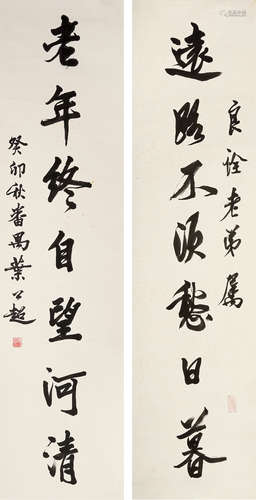 良詮老弟屬
遠路不須愁日暮
老年終自望河清
癸卯秋番禺葉公超